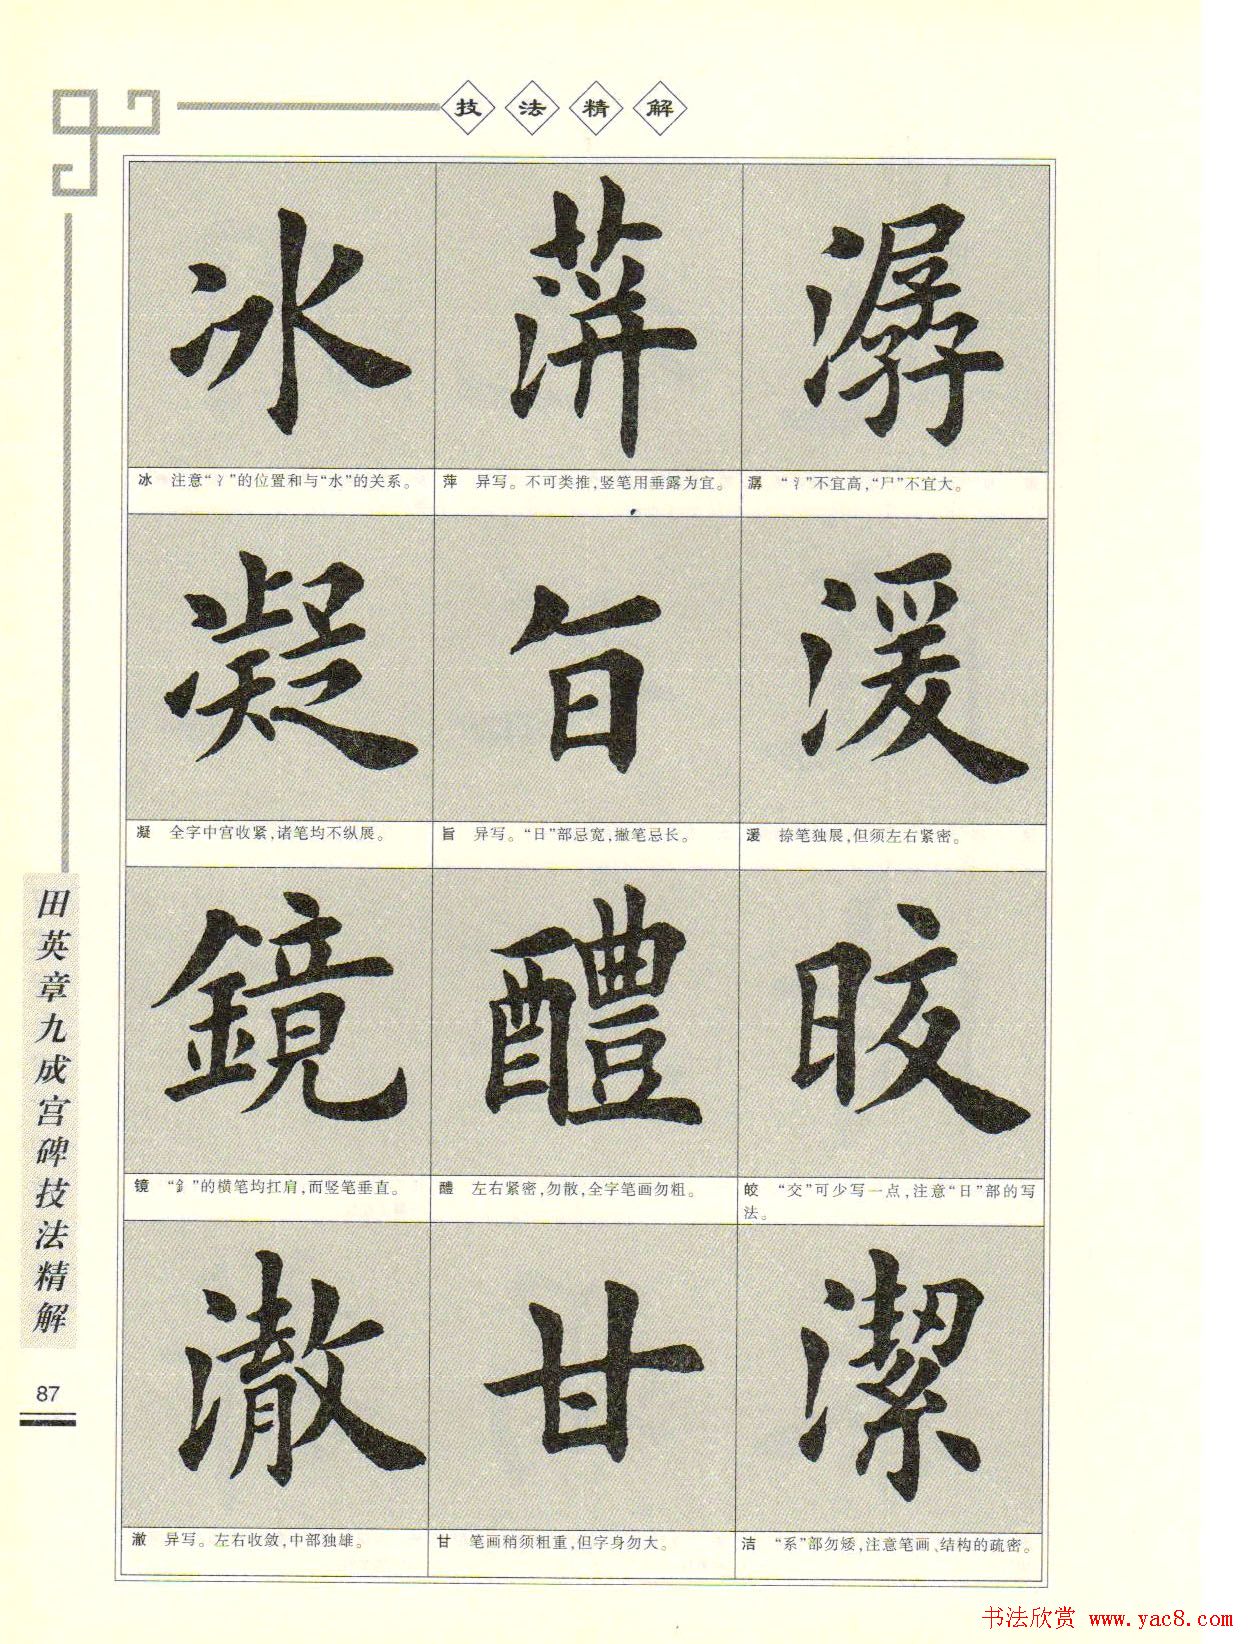 技法精解
冰 萍 潺
冰 注意“冫”的位置和与“水”的关系。
萍 异写。不可类推,竖笔用垂露为宜。
潺 “氵”不宜高,“尸”不宜大。
凝 旨 湲
凝 全字中宫收紧,诸笔均不纵展。
旨 异写。“日”部忌宽,撇笔忌长。
湲 捺笔独展,但须左右紧密。
鏡 醴 皎
镜 “釒”的横笔均扛肩,而竖笔垂直。
醴 左右紧密,勿散,全字笔画勿粗。
皎 “交”可少写一点,注意“日”部的写
法。
澈 甘 潔
澈 异写。左右收敛,中部独雄。
甘 笔画稍须粗重,但字身勿大。
洁 “系”部勿矮,注意笔画、结构的疏密。
田英章九成宫碑技法精解
87
书法欣赏 www.yac8.com